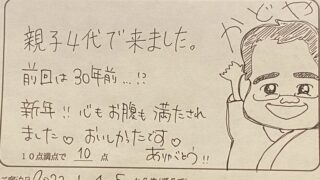 かどや
親子4代で来ました。
前回は30年前…!?
新年!! 心もお腹も満たされ
ました♡ おいしかったです♡
10点満点で 10 点 ありがとう!!